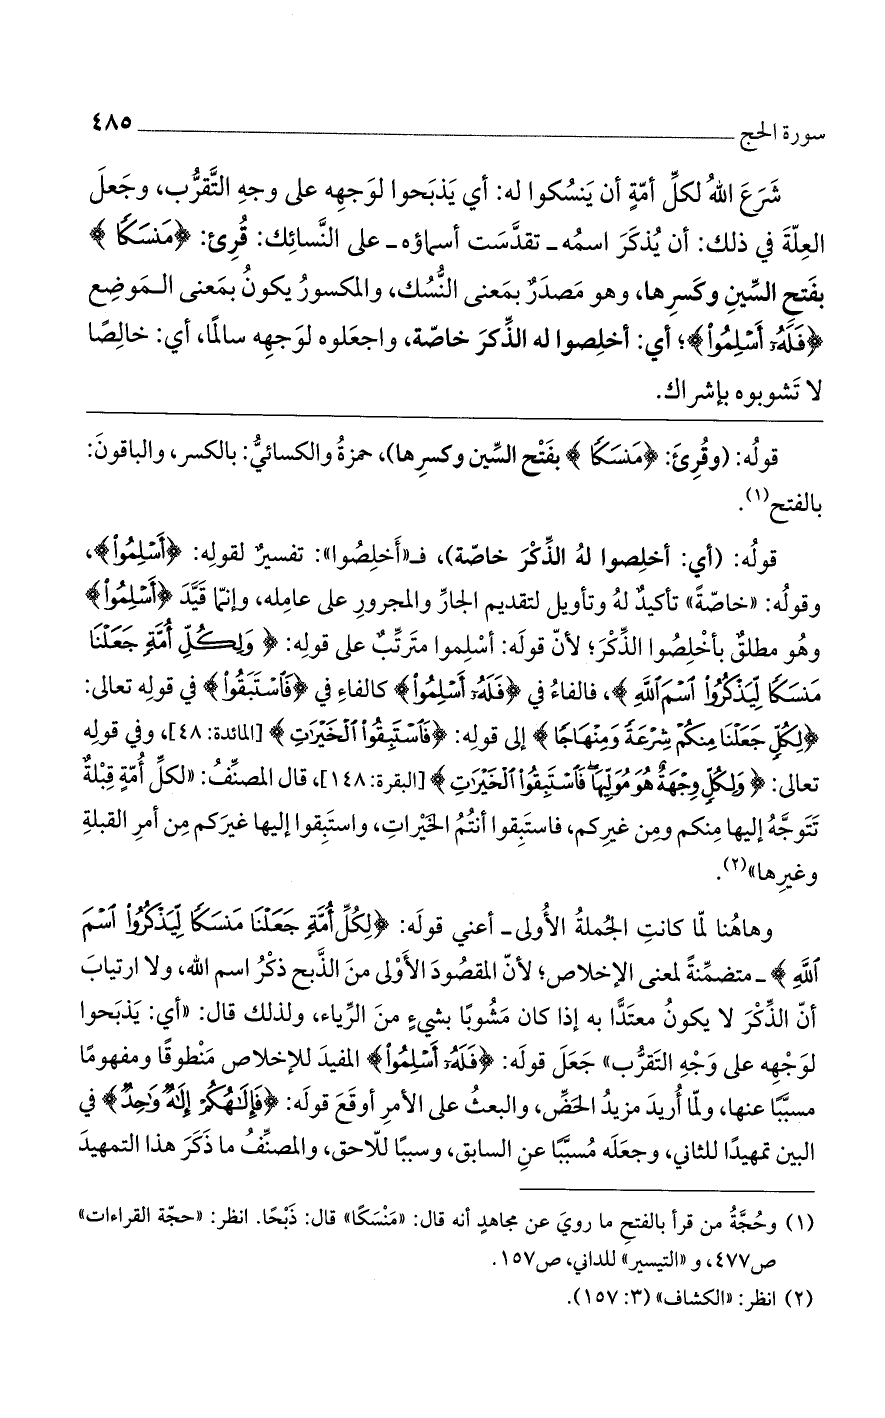 سورة الحج ٤٨٥
شَرَعَ اللهُ لكلِّ أمّةٍ أن يَنسُكوا له: أي يَذبَحوا لوَجهِه على وجهِ التَّقرُّب، وجَعلَ
العِلّةَ في ذلك: أن يُذكَرَ اسمُه ـ تقدَّسَت أسماؤه ـ على النَّسائِك: قُرِئ: ﴿مَنسَكًا﴾
بفَتحِ السِّينِ وكَسرِها، وهو مَصدَرٌ بمَعنى النُّسُك، والمكسورُ يكونُ بمَعنى الـمَوضِع
﴿فَلَهُۥٓ أَسْلِمُوا۟﴾؛ أي: أخلِصوا له الذِّكرَ خاصّة، واجعَلوه لوَجهِه سالمًا، أي: خالِصًا
لا تَشوبوه بإشراك.
قولُه: (وقُرِئَ: ﴿مَنسَكًا﴾ بفَتْحِ السِّين وكسرِها)، حمزةُ والكسائيُّ: بالكسر، والباقونَ:
بالفتح(١).
قولُه: (أي: أخلِصوا لهُ الذِّكْرَ خاصّة)، فـ«أَخلِصُوا»: تفسيرٌ لقولِه: ﴿أَسْلِمُوا۟﴾،
وقولُه: «خاصّةً» تأكيدٌ لهُ وتأويل لتقديم الجارِّ والمجرورِ على عامِله، وإنّما قَيَّدَ ﴿أَسْلِمُوا۟﴾
وهُو مطلقٌ بأخْلِصُوا الذِّكْرَ؛ لأنّ قولَه: أسْلِموا مترتِّبٌ على قولِه: ﴿وَلِكُلِّ أُمَّةٍ جَعَلْنَا
مَنسَكًا لِّيَذْكُرُوا۟ ٱسْمَ ٱللَّهِ﴾، فالفاءُ في ﴿فَلَهُۥٓ أَسْلِمُوا۟﴾ كالفاءِ في ﴿فَٱسْتَبِقُوا۟﴾ في قولِه تعالى:
﴿لِكُلٍّ جَعَلْنَا مِنكُمْ شِرْعَةً وَمِنْهَاجًا﴾ إلى قولِه: ﴿فَٱسْتَبِقُوا۟ ٱلْخَيْرَٰتِ﴾ [المائدة: ٤٨]، وفي قولِه
تعالى: ﴿وَلِكُلٍّ وِجْهَةٌ هُوَ مُوَلِّيهَا ۖ فَٱسْتَبِقُوا۟ ٱلْخَيْرَٰتِ﴾ [البقرة: ١٤٨]، قال المصنِّفُ: «لكلِّ أُمّةٍ قِبْلةٌ
تَتَوجَّهُ إليها مِنكم ومِن غيرِكم، فاستَبِقوا أنتُمُ الخَيْراتِ، واستَبِقوا إليها غيرَكم مِن أمرِ القبلةِ
وغيرِها»(٢).
وهاهُنا لمّا كانتِ الجُملةُ الأُولى ـ أعني قولَه: ﴿لِكُلِّ أُمَّةٍ جَعَلْنَا مَنسَكًا لِّيَذْكُرُوا۟ ٱسْمَ
ٱللَّهِ﴾ ـ متضمِّنةً لمعنى الإخلاص؛ لأنّ المقصُودَ الأَوْلى منَ الذَّبح ذكْرُ اسم الله، ولا ارتيابَ
أنّ الذِّكْرَ لا يكونُ معتَدًّا به إذا كان مَشُوبًا بشيءٍ منَ الرِّياء، ولذلك قال: «أي: يَذبَحوا
لوَجْهِه على وَجْهِ التَقرُّب» جَعَلَ قولَه: ﴿فَلَهُۥٓ أَسْلِمُوا۟﴾ المفيدَ للإخلاص مَنْطوقًا ومفهومًا
مسبَّبًا عنها، ولمّا أُريدَ مزيدُ الحَضِّ، والبعثُ على الأمرِ أوقَعَ قولَه: ﴿فَإِلَٰهُكُمْ إِلَٰهٌ وَٰحِدٌ﴾ في
البين تمهيدًا للثاني، وجعلَه مُسبَّبًا عنِ السابق، وسببًا للّاحق، والمصنِّفُ ما ذَكَرَ هذا التمهيدَ
(١) وحُجَّةُ من قرأ بالفتحِ ما رويَ عن مجاهدٍ أنه قال: «مَنْسَكًا» قال: ذَبْحًا. انظر: «حجّة القراءات»
ص٤٧٧، و «التيسير» للداني، ص١٥٧.
(٢) انظر: «الكشاف» (٣: ١٥٧).